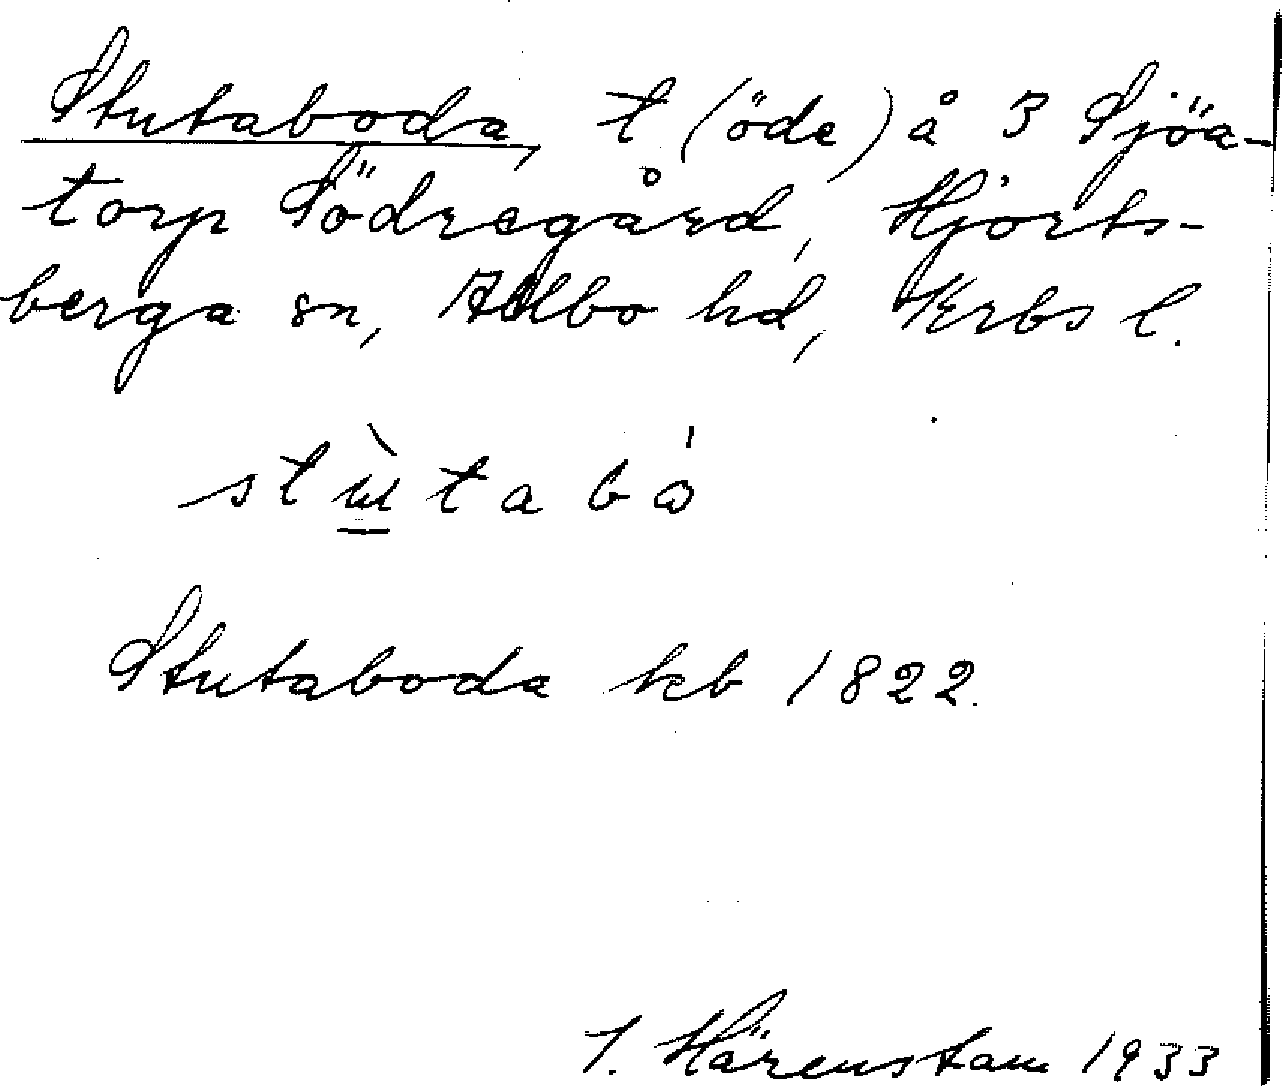 Stutaboda, t (öde) å 3 Sjöa-
torp Södregård, Hjorts-
berga sn, Allbo hd, Krbs l.
stù̲tabó
Stutaboda kb 1822.
J. Härenstam 1933